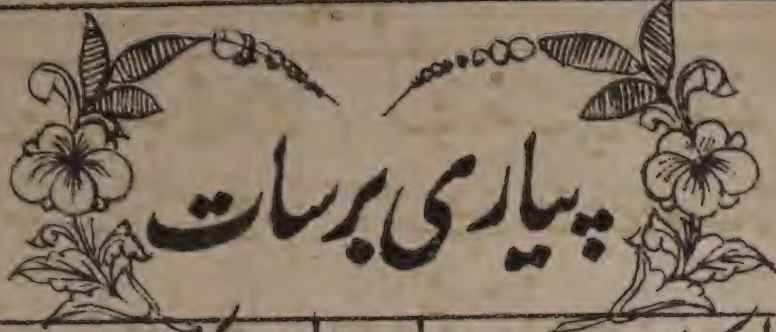 پیاری برسات